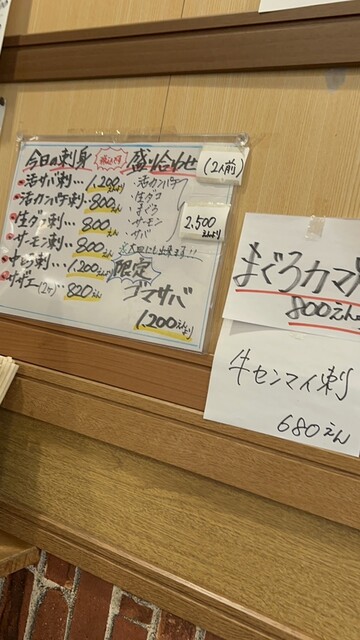 今日の刺身
活サバ刺… 1,200えんより
活カンパチ… 800えん
生ダコ刺… 800えん
サーモン刺… 800えん
中トロ刺… 1,200えん
サザエ(2ケ)… 820えん
盛り合わせ
(2人前)
・活カンパチ
・生ダコ
・まぐろ
・サーモン
・サバ
2,500
えんより
限定
ゴマサバ
1,200えんより
まぐろカマ
800えん
牛センマイ刺
680えん